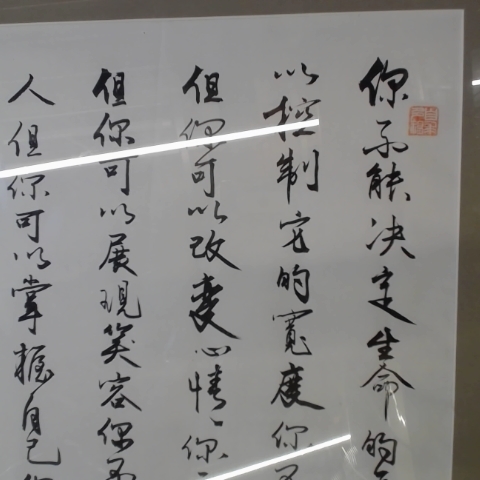 你不能决定生命的
以控制它的寬度你不
但你可以改变心情你
但你可以展現笑容你不
人但你可以掌握自己你